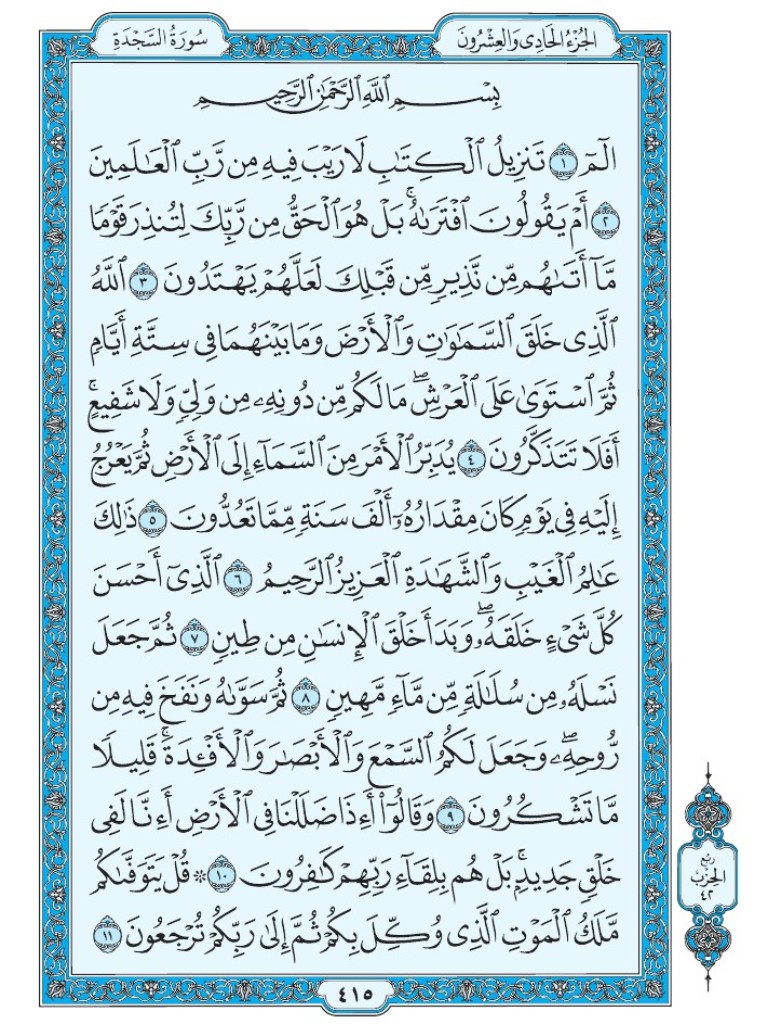 الجُزْءُ الحَادِى وَالعِشْرُونَ
سُورَةُ السَّجْدَةِ
بِسْمِ ٱللَّهِ ٱلرَّحْمَٰنِ ٱلرَّحِيمِ
الٓمٓ ١ تَنزِيلُ ٱلْكِتَٰبِ لَا رَيْبَ فِيهِ مِن رَّبِّ ٱلْعَٰلَمِينَ
٢ أَمْ يَقُولُونَ ٱفْتَرَىٰهُۚ بَلْ هُوَ ٱلْحَقُّ مِن رَّبِّكَ لِتُنذِرَ قَوْمًا
مَّآ أَتَىٰهُم مِّن نَّذِيرٍ مِّن قَبْلِكَ لَعَلَّهُمْ يَهْتَدُونَ ٣ ٱللَّهُ
ٱلَّذِى خَلَقَ ٱلسَّمَٰوَٰتِ وَٱلْأَرْضَ وَمَا بَيْنَهُمَا فِى سِتَّةِ أَيَّامٍ
ثُمَّ ٱسْتَوَىٰ عَلَى ٱلْعَرْشِۖ مَا لَكُم مِّن دُونِهِۦ مِن وَلِىٍّ وَلَا شَفِيعٍۚ
أَفَلَا تَتَذَكَّرُونَ ٤ يُدَبِّرُ ٱلْأَمْرَ مِنَ ٱلسَّمَآءِ إِلَى ٱلْأَرْضِ ثُمَّ يَعْرُجُ
إِلَيْهِ فِى يَوْمٍ كَانَ مِقْدَارُهُۥٓ أَلْفَ سَنَةٍ مِّمَّا تَعُدُّونَ ٥ ذَٰلِكَ
عَٰلِمُ ٱلْغَيْبِ وَٱلشَّهَٰدَةِ ٱلْعَزِيزُ ٱلرَّحِيمُ ٦ ٱلَّذِىٓ أَحْسَنَ
كُلَّ شَىْءٍ خَلَقَهُۥۖ وَبَدَأَ خَلْقَ ٱلْإِنسَٰنِ مِن طِينٍ ٧ ثُمَّ جَعَلَ
نَسْلَهُۥ مِن سُلَٰلَةٍ مِّن مَّآءٍ مَّهِينٍ ٨ ثُمَّ سَوَّىٰهُ وَنَفَخَ فِيهِ مِن
رُّوحِهِۦۖ وَجَعَلَ لَكُمُ ٱلسَّمْعَ وَٱلْأَبْصَٰرَ وَٱلْأَفْـِٔدَةَۚ قَلِيلًا
مَّا تَشْكُرُونَ ٩ وَقَالُوٓا۟ أَءِذَا ضَلَلْنَا فِى ٱلْأَرْضِ أَءِنَّا لَفِى
خَلْقٍ جَدِيدٍۭۚ بَلْ هُم بِلِقَآءِ رَبِّهِمْ كَٰفِرُونَ ١٠ ۞ قُلْ يَتَوَفَّىٰكُم
مَّلَكُ ٱلْمَوْتِ ٱلَّذِى وُكِّلَ بِكُمْ ثُمَّ إِلَىٰ رَبِّكُمْ تُرْجَعُونَ ١١
رُبع
الحِزْب
٤٢
٤١٥